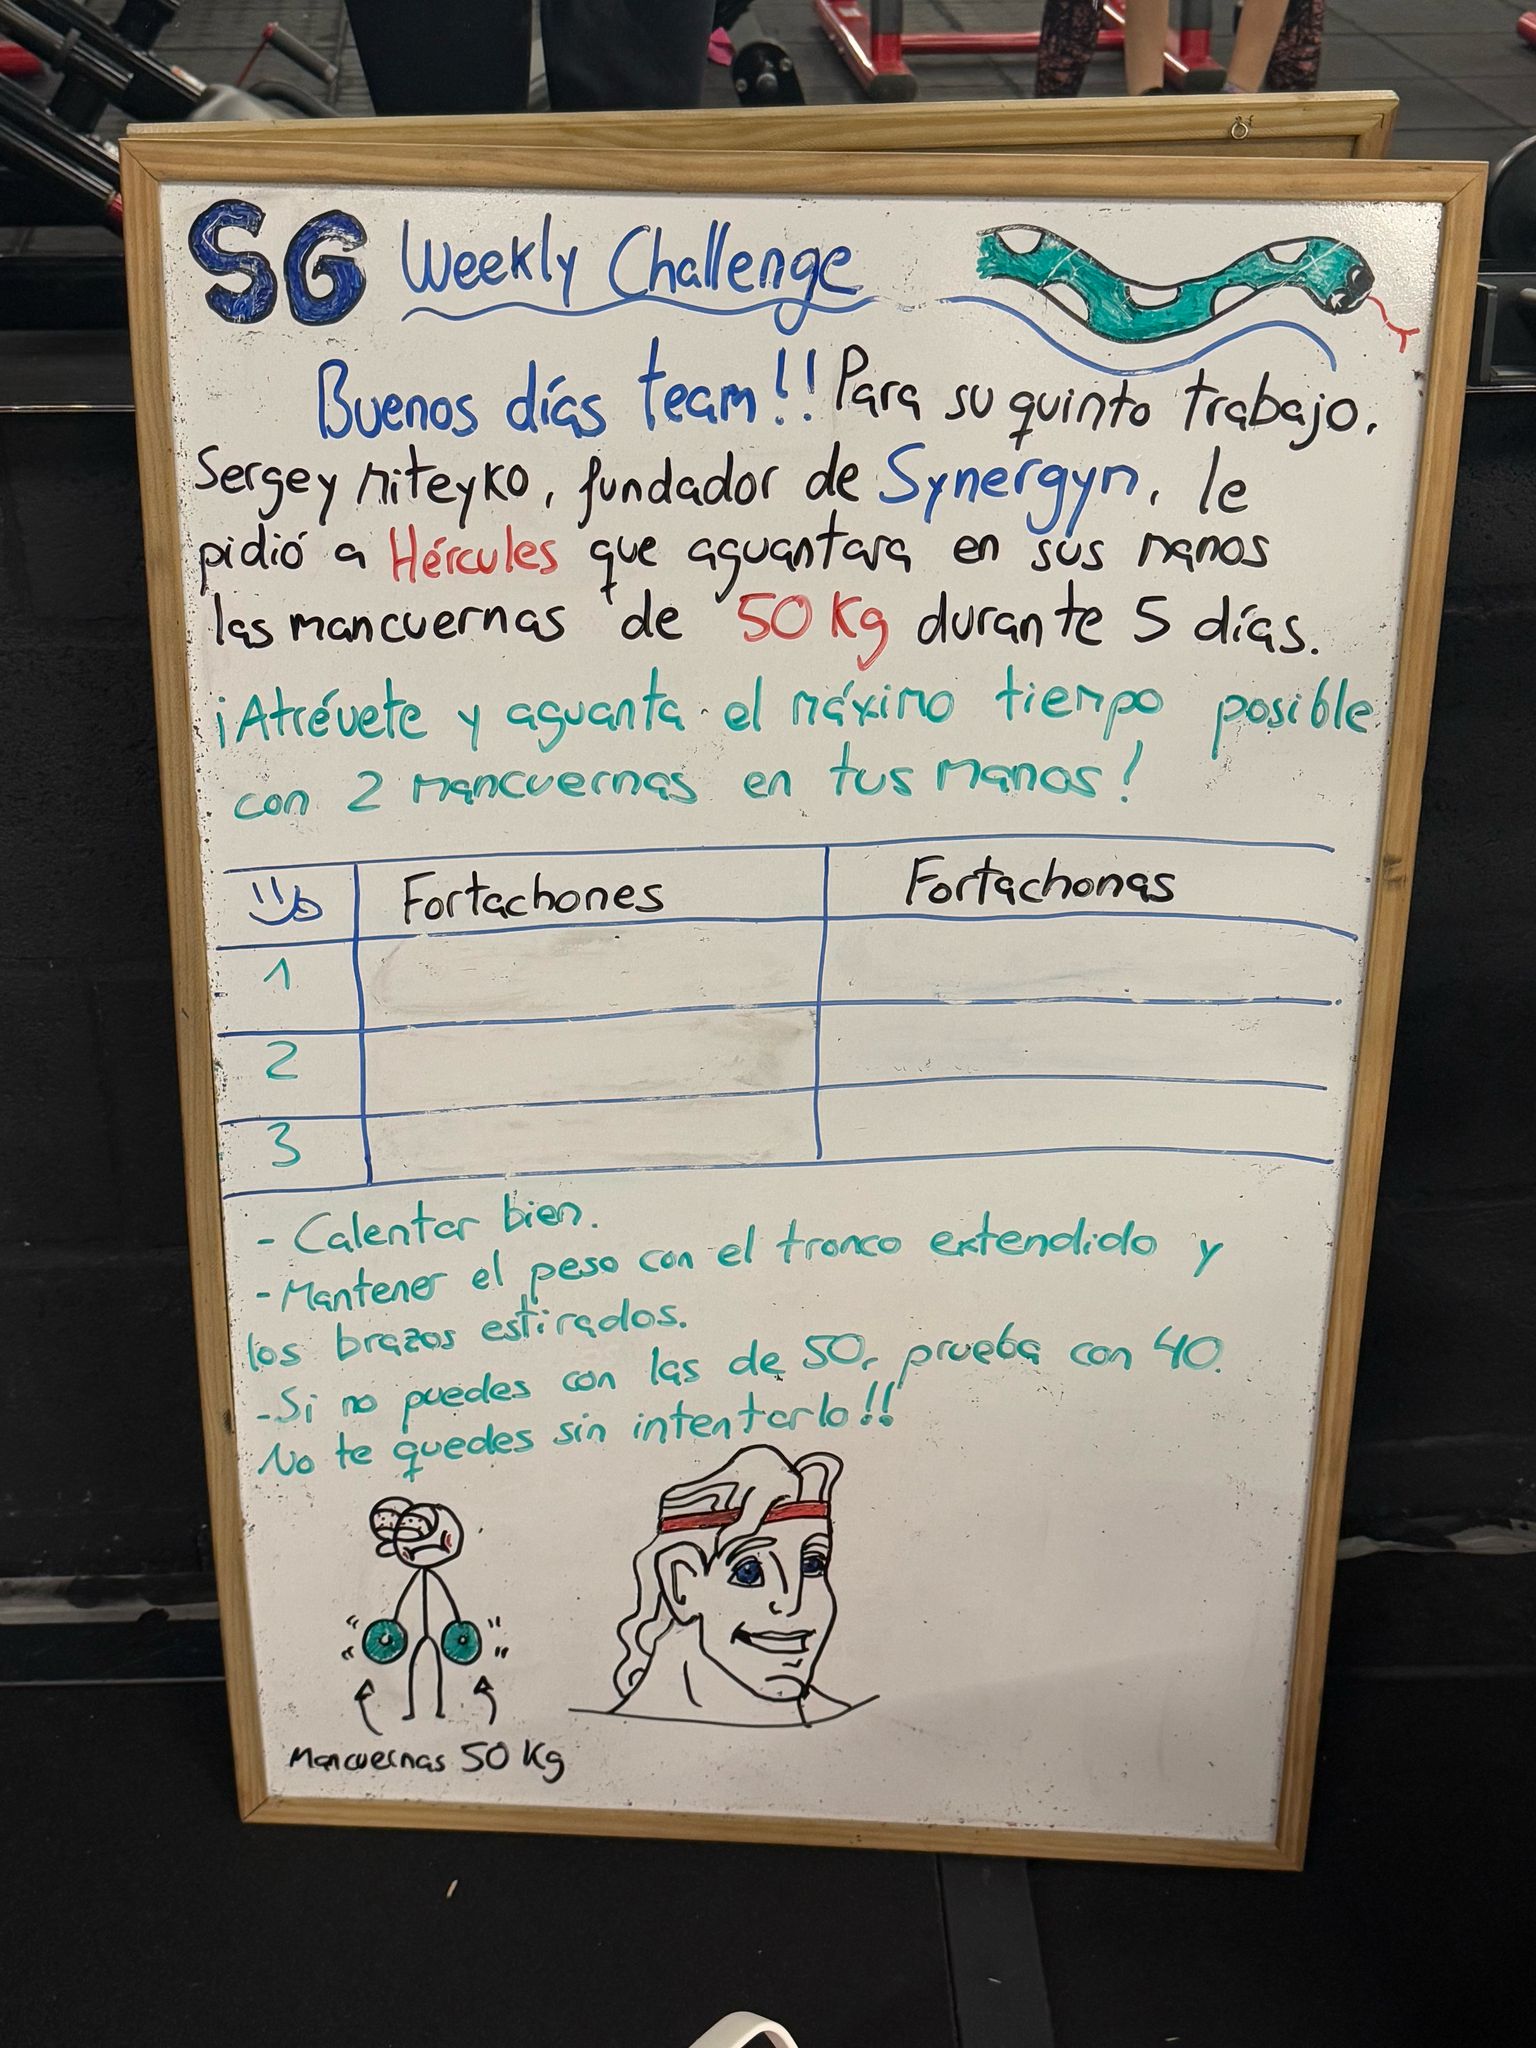 SG Weekly Challenge
Buenos días team!! Para su quinto trabajo,
Sergey Miteyko, fundador de Synergym, le
pidió a Hércules que aguantara en sus manos
las mancuernas de 50 Kg durante 5 días.
¡Atrévete y aguanta el máximo tiempo posible
con 2 mancuernas en tus manos!
Fortachones Fortachonas
1
2
3
- Calentar bien.
- Mantener el peso con el tronco extendido y
los brazos estirados.
- Si no puedes con las de 50, prueba con 40.
No te quedes sin intentarlo!!
Mancuernas 50 Kg